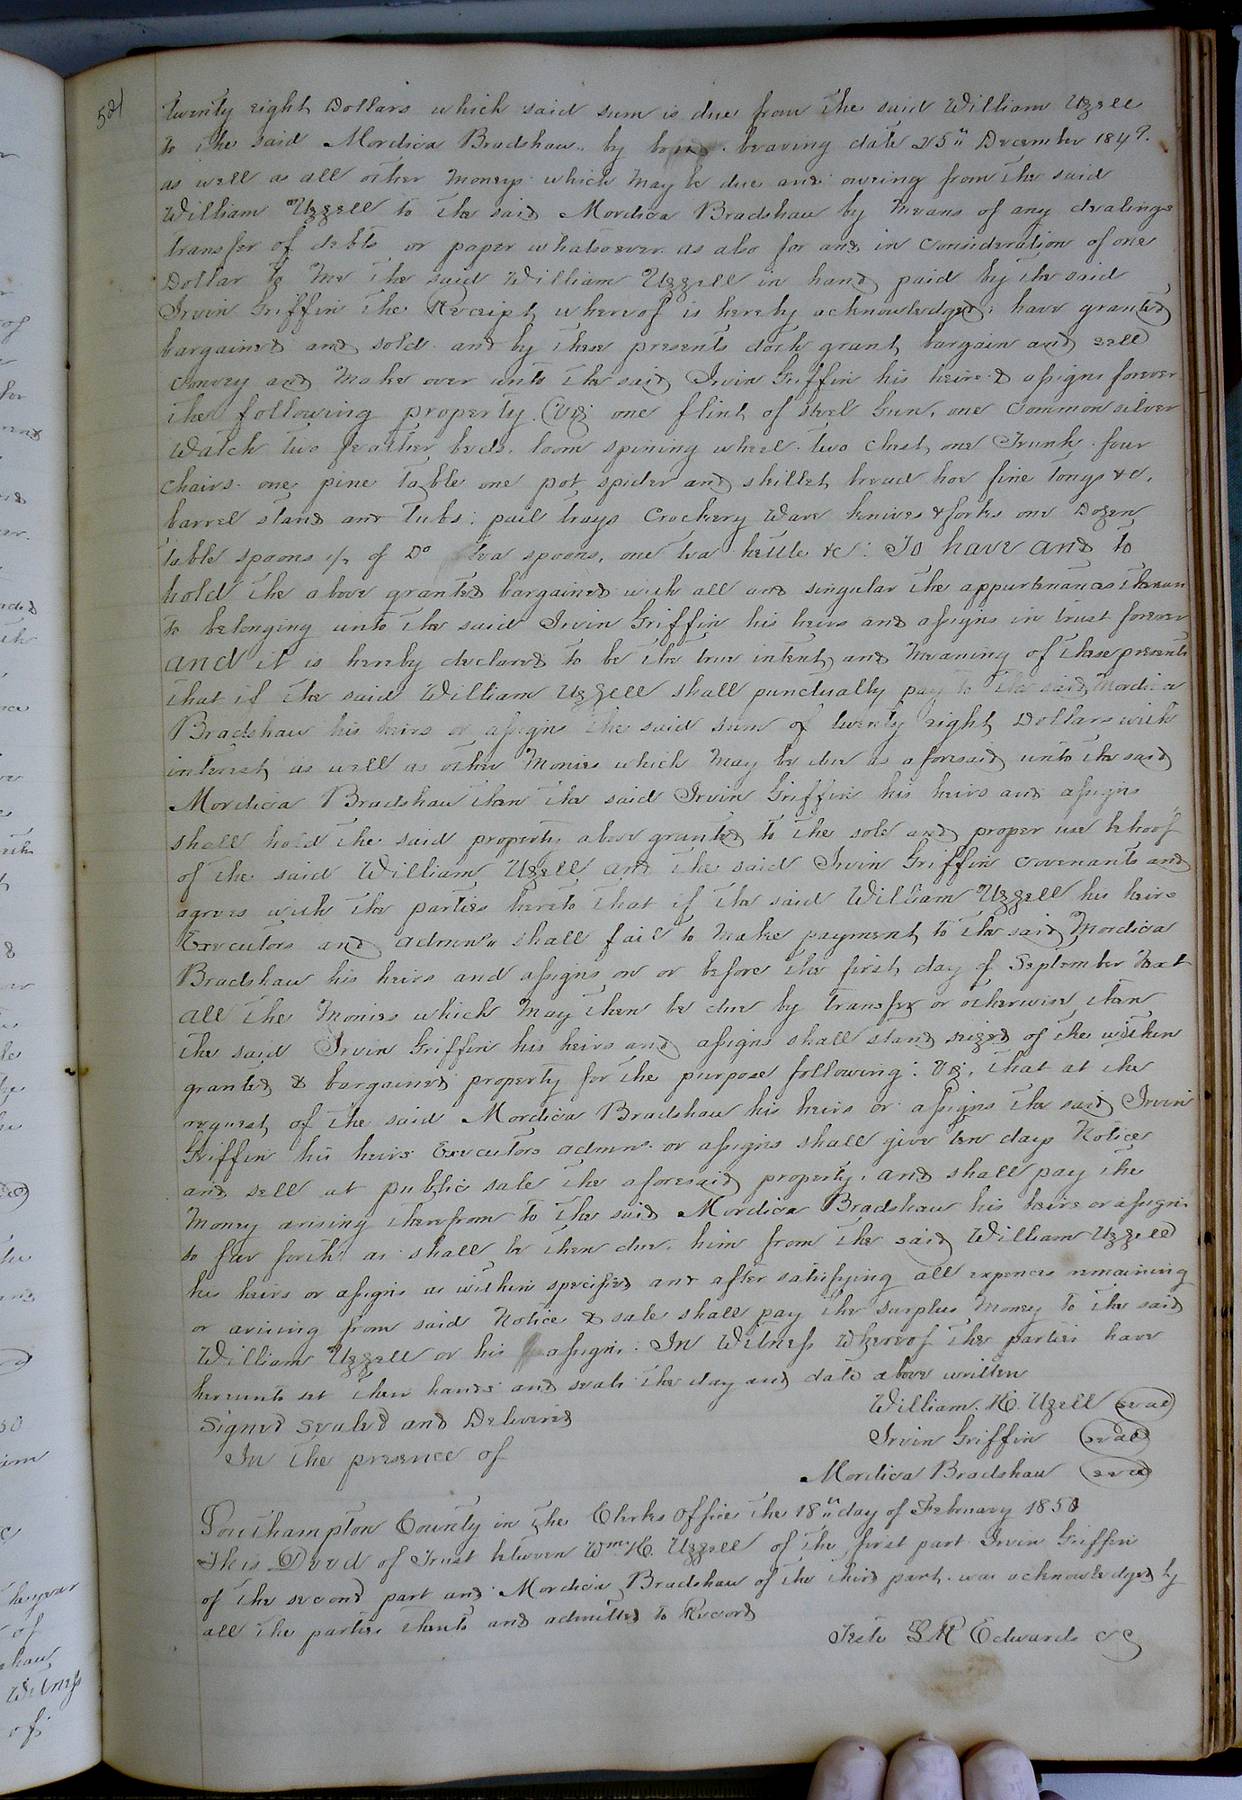 521
twenty eight Dollars which said sum is due from the said William Uzzell
to the said Mordica Bradshaw by bond bearing date 25th December 1847.
as well as all other moneys which may be due and owering from the said
William Uzzell to the said Mordica Bradshaw by means of any dealings
transfer of debts or paper whatsoever as also for and in consideration of one
Dollar to me the said William Uzzell in hand paid by the said
Irvin Griffin the Receipt whereof is hereby acknowledged; have granted
bargained and sold and by these presents doth grant bargain and sell
convey and make over unto the said Irvin Griffin his heirs & assigns forever
the following property (viz: one flint of steel Gun, one common silver
Watch two feather beds. loom spining wheel. two Chest, one Trunk four
chairs. one pine table one pot spider and skillet broad hoe fine tongs &c.
barrel stand and Tubs; pail trays Crockery Ware knives & forks one Dozen
table spoons ½ of Do tea spoons, one tea kettle &c: To have and to
hold the above granted bargained with all and singular the appurtenances thereun
to belonging unto the said Irvin Griffin his heirs and assigns in trust forever
and it is hereby declared to be the true intent and meaning of these presents
that if the said William Uzzell shall punctually pay to the said Mordica
Bradshaw his heirs or assigns the said sum of twenty eight Dollars with
interest as well as other Monies which may be due as aforesaid unto the said
Mordica Bradshaw then the said Irvin Griffin his heirs and assigns
shall hold the said property above granted to the sole and proper use behoof
of the said William Uzzell and the said Irvin Griffin covenants and
agrees with the parties hereto that if the said William Uzzell his heirs
Executors and admnrs shall fail to make payment to the said Mordica
Bradshaw his heirs and assigns on or before the first day of September Next
all the Monies which may then be due by transfer or otherwise then
the said Irvin Griffin his heirs and assigns shall stand seized of the within
granted & bargained property for the purpose following: Viz. that at the
request of the said Mordica Bradshaw his heirs or assigns the said Irvin
Griffin his heirs Executors admnr. or assigns shall give ten days Notice
and sell at public sale the aforesaid property, and shall pay the
Money arising therefrom to the said Mordica Bradshaw his heirs or assigns
so far forth as shall be then due him from the said William Uzzell
his heirs or assigns as within specified and after satisfying all expences remaining
or arising from said Notice & sale shall pay the surplus Money to the said
William Uzzell or his assigns: In Witness Whereof the parties have
hereunto set their hands and seals the day and date above written
Signed Sealed and Delivered William. H. Uzell (seal)
In the presence of Irvin Griffin (seal)
Mordica Bradshaw (seal)
Southampton County in the Clerks Office the 18th day of February 1850
This Deed of Trust between Wm. H. Uzzell of the first part Irvin Griffin
of the second part and Mordica Bradshaw of the third part was acknowledged by
all the parties thereto and admitted to Record
Teste L R Edwards CC